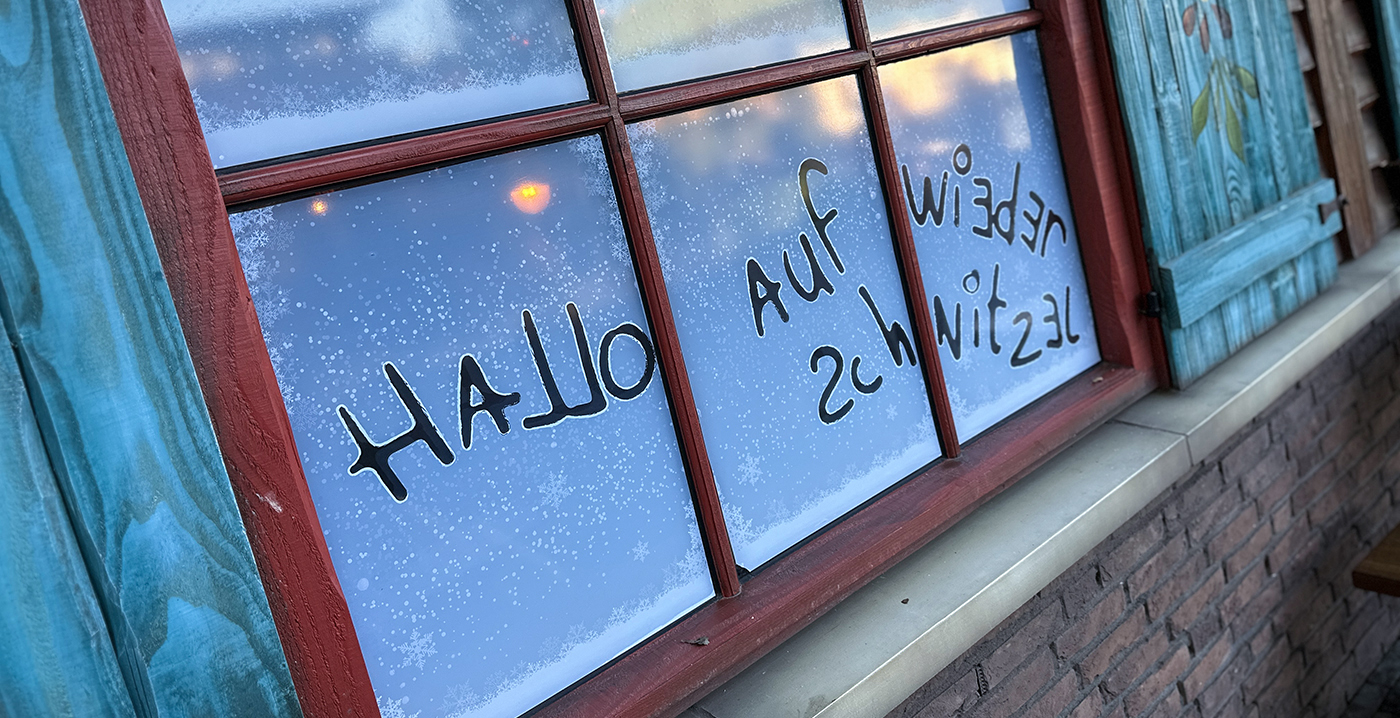 HALLO
AUf WiEdEr
SchNitzEL